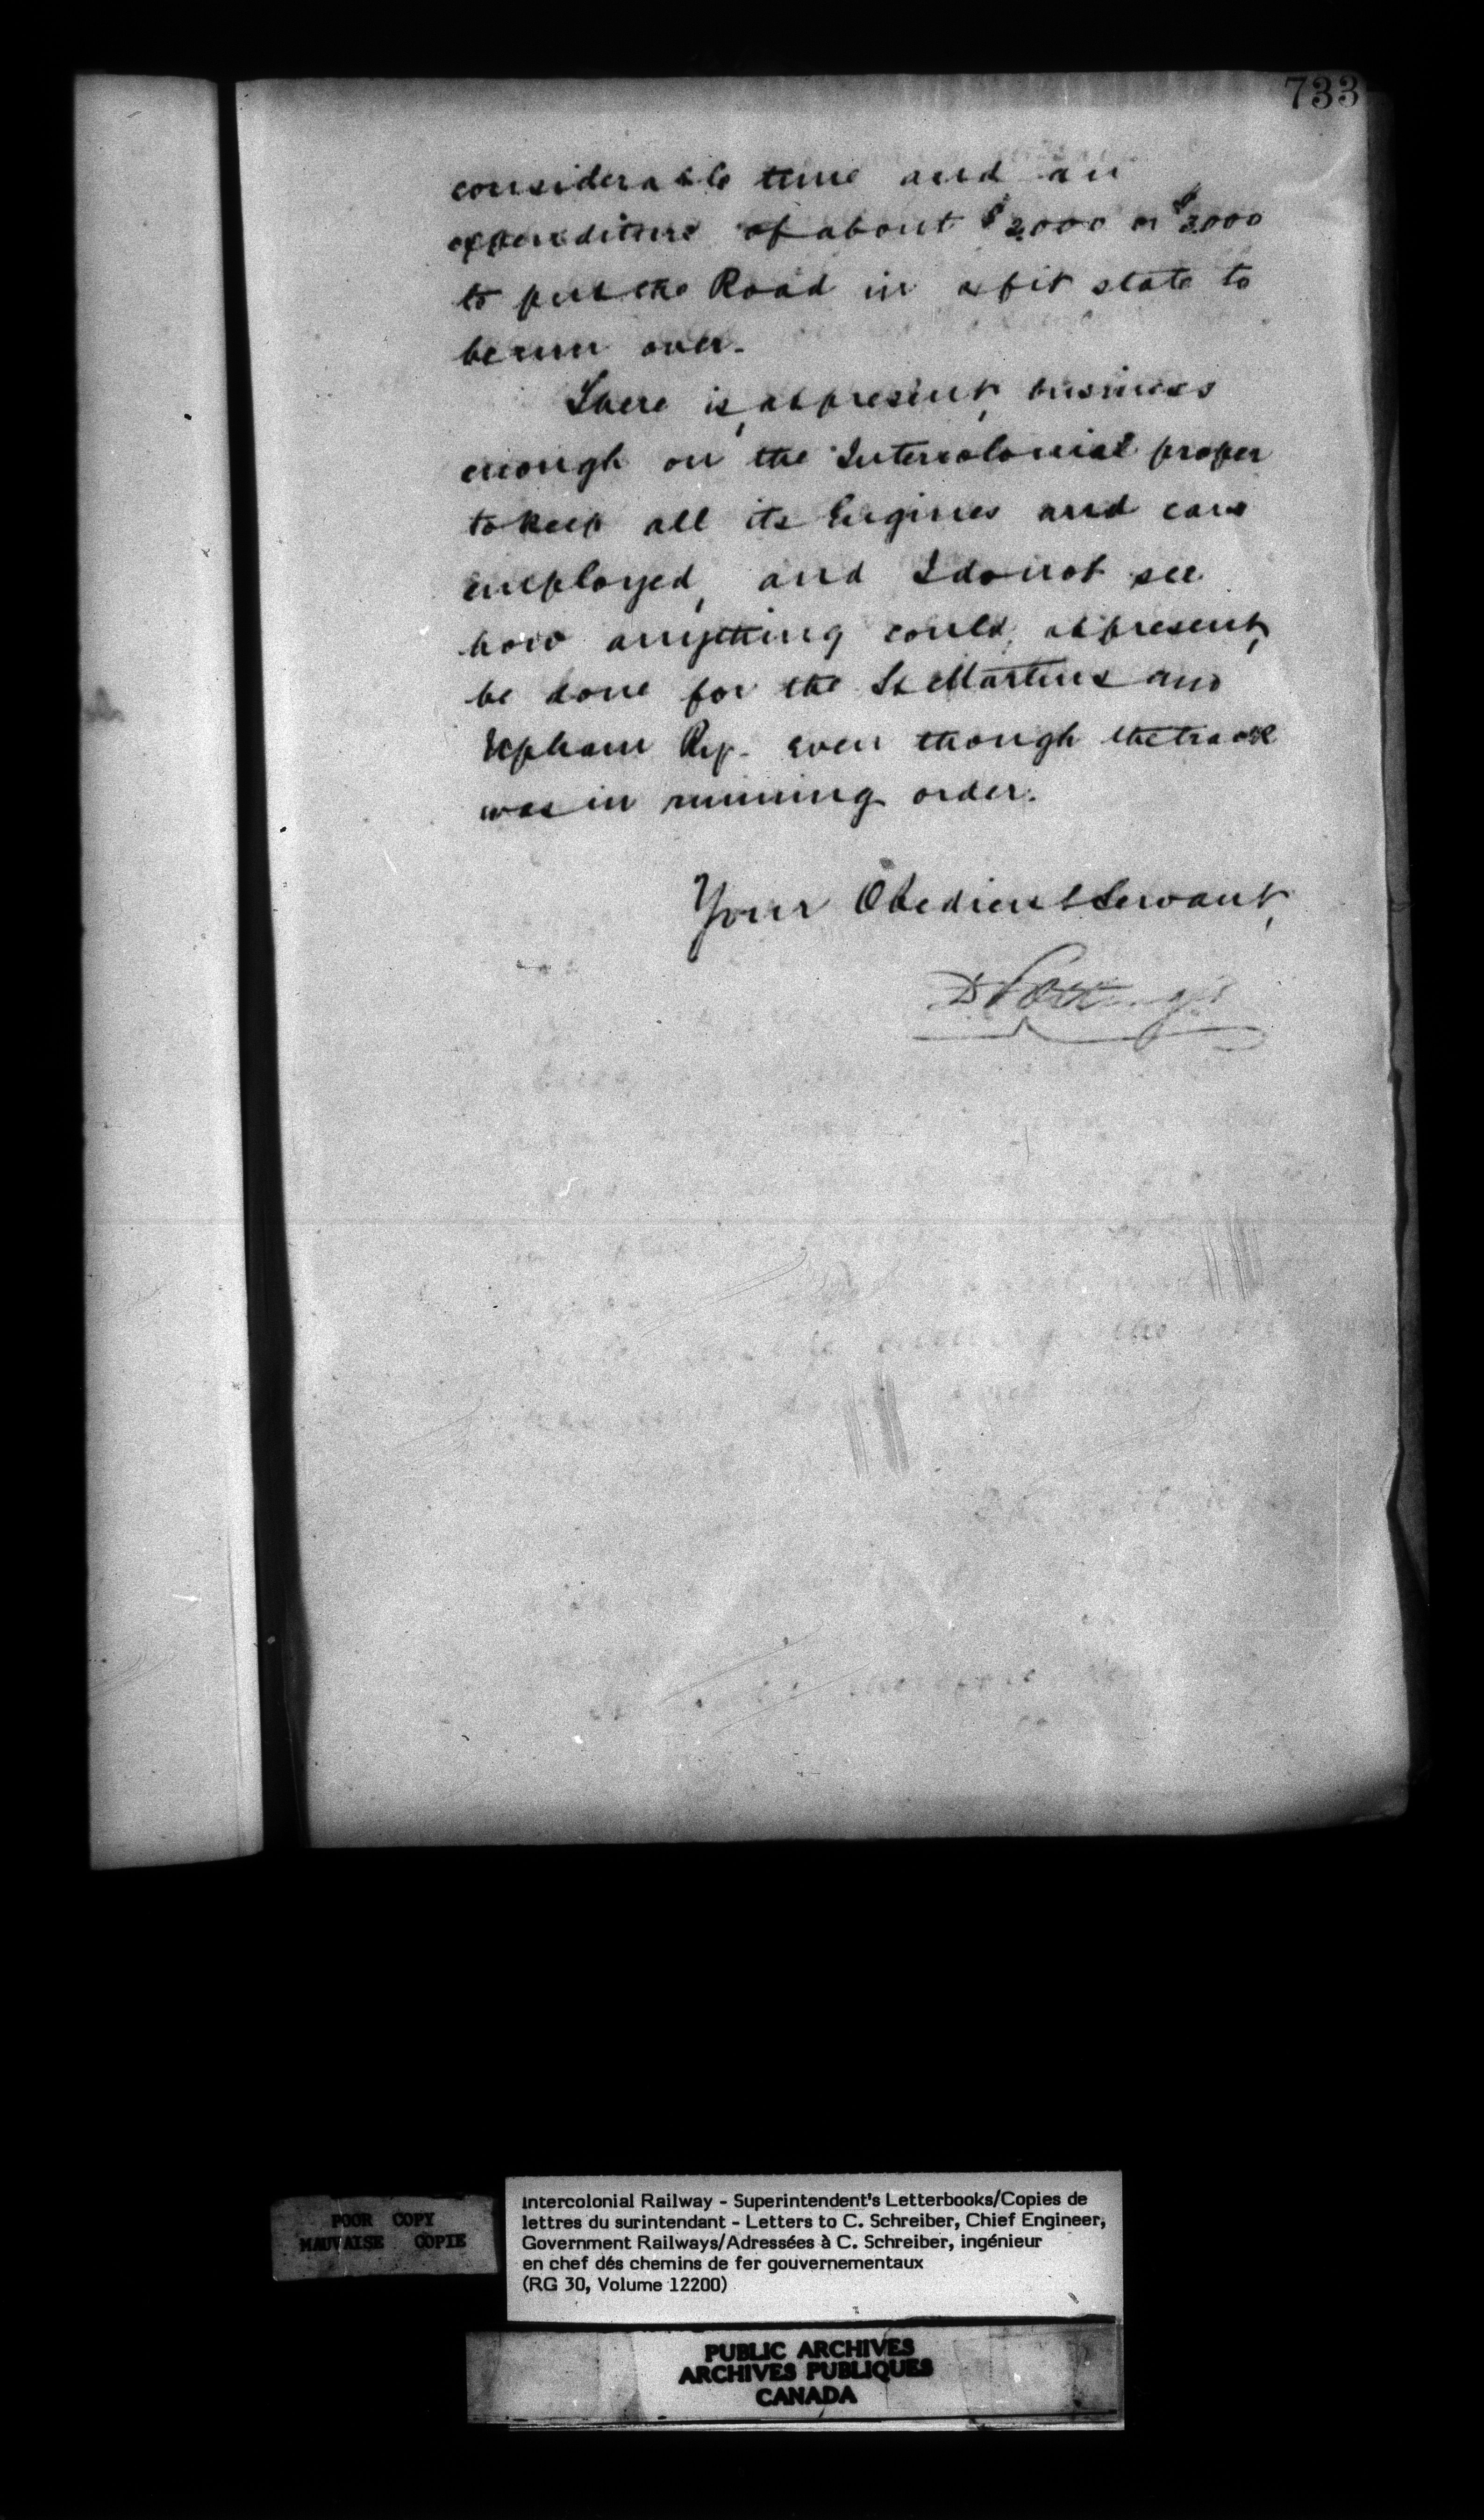 733
considerable time and an
expenditure of about $2000 or $3000
to put the Road in a fit state to
be run over.
There is, at present, business
enough on the Intercolonial proper
to keep all its Engines and cars
employed, and I do not see
how anything could, at present,
be done for the St Martins and
Upham Ry. even though the track
was in running order.
Your Obedient Servant,
D. Pottinger
POOR COPY
MAUVAISE COPIE
Intercolonial Railway - Superintendent's Letterbooks/Copies de
lettres du surintendant - Letters to C. Schreiber, Chief Engineer,
Government Railways/Adressées à C. Schreiber, ingénieur
en chef dés chemins de fer gouvernementaux
(RG 30, Volume 12200)
PUBLIC ARCHIVES
ARCHIVES PUBLIQUES
CANADA